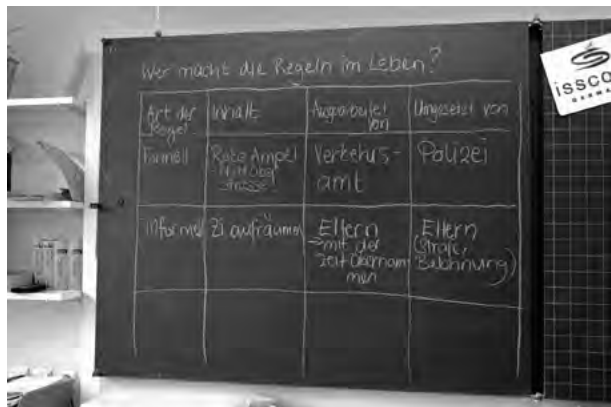 Wer macht die Regeln im Leben?
Art der
Regel
Inhalt
Ausgearbeitet
von
Umgesetzt von
Formell
Rote Ampel
strasse
Verkehrs-
amt
Polizei
Informel
Zi aufräumen
Eltern
mit der
Zeit übernom
men
Eltern
(Strafe,
Belohnung)
issco
GERMANY